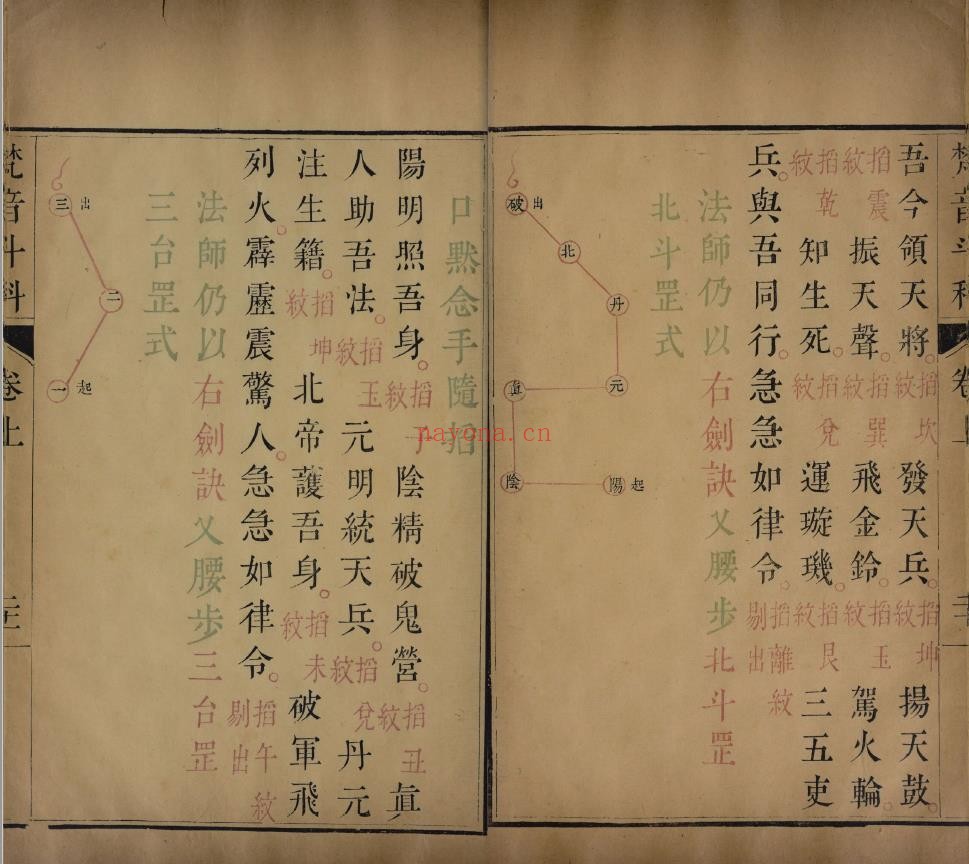 梵音斗科 卷上
吾今領天將。搯坎紋 發天兵。搯坤紋 揚天鼓。
搯震紋 振天聲。搯巽紋 飛金鈴。搯玉紋 駕火輪。
搯乾紋 知生死。搯兌紋 運璇璣。搯艮紋 三五吏
兵。與吾同行。急急如律令。搯離紋剔出
法師仍以右劍訣叉腰步北斗罡
北斗罡式
陽 起
陰
眞
元
丹
北
破 出
口默念手隨搯
陽明照吾身。搯紋 陰精破鬼營。搯丑紋 眞
人助吾法。搯玉紋 元明統天兵。搯兌紋 丹元
注生籍。搯坤紋 北帝護吾身。搯未紋 破軍飛
列火。霹靂震驚人。急急如律令。搯午紋剔出
法師仍以右劍訣叉腰步三台罡
三台罡式
一 起
二
三 出
梵音斗科 卷上
nayona.cn